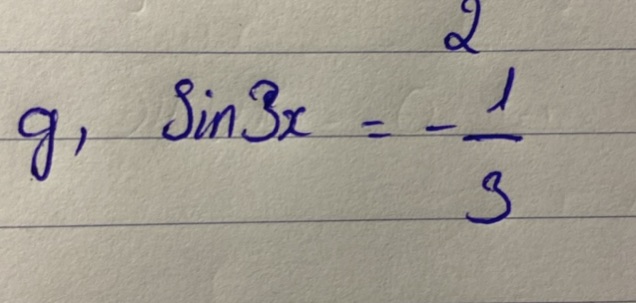 2
g, Sin3x = - 1/3